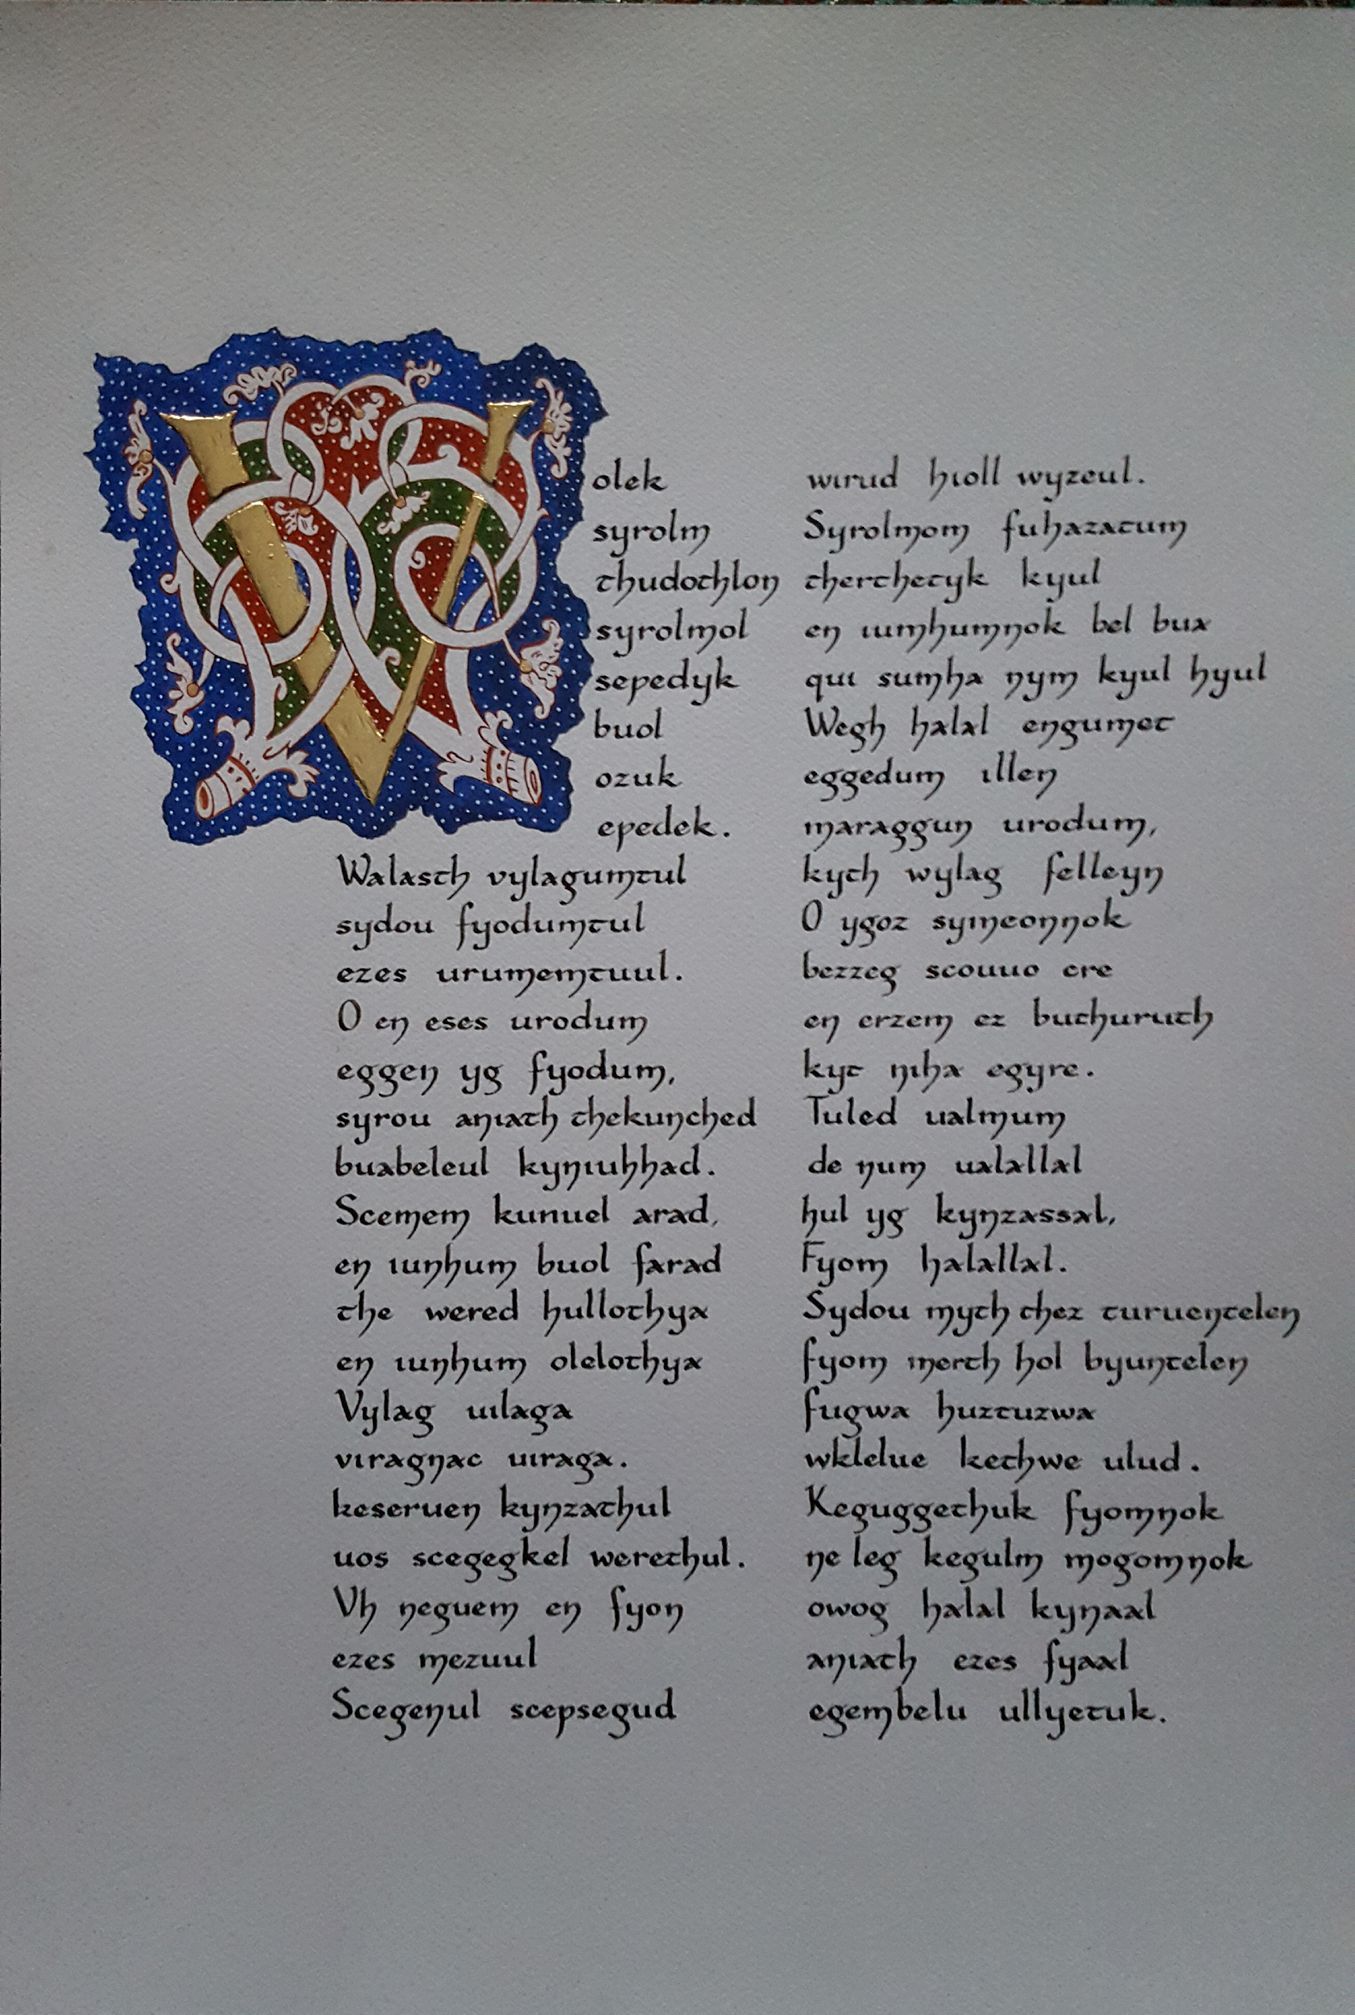 Volek
syrolm
thudothlon
syrolmol
sepedyk
buol
ozuk
epedek.
Walasth vylagumtul
sydou fyodumtul
ezes urumemtuul.
O en eses urodum
eggen yg fyodum,
syrou aniath thekunched
buabeleul kyniuhhad.
Scemem kunuel arad,
en iunhum buol farad
the wered hullothya
en iunhum olelothya
Vylag uilaga
viragnac uiraga.
keseruen kynzathul
uos scegegkel werethul.
Vh neguem en fyon
ezes mezuul
Scegenul scepsegud
wirud hioll wyzeul.
Syrolmom fuhazatum
therthetyk kyul
en iumhumnok bel bua
qui sumha nym kyul hyul
Wegh halal engumet
eggedum illen
maraggun urodum,
kyth wylag felleyn
O ygoz symeonnok
bezzeg scouuo ere
en erzem ez buthuruth
kyt niha egyre.
Tuled ualmum
de num ualallal
hul yg kynzassal,
Fyom halallal.
Sydou myth thez turuentelen
fyom merth hol byuntelen
fugwa huztuzwa
wklelue kethwe ulud.
Keguggethuk fyomnok
ne leg kegulm mogomnok
owog halal kynaal
aniath ezes fyaal
egembelu ullyetuk.